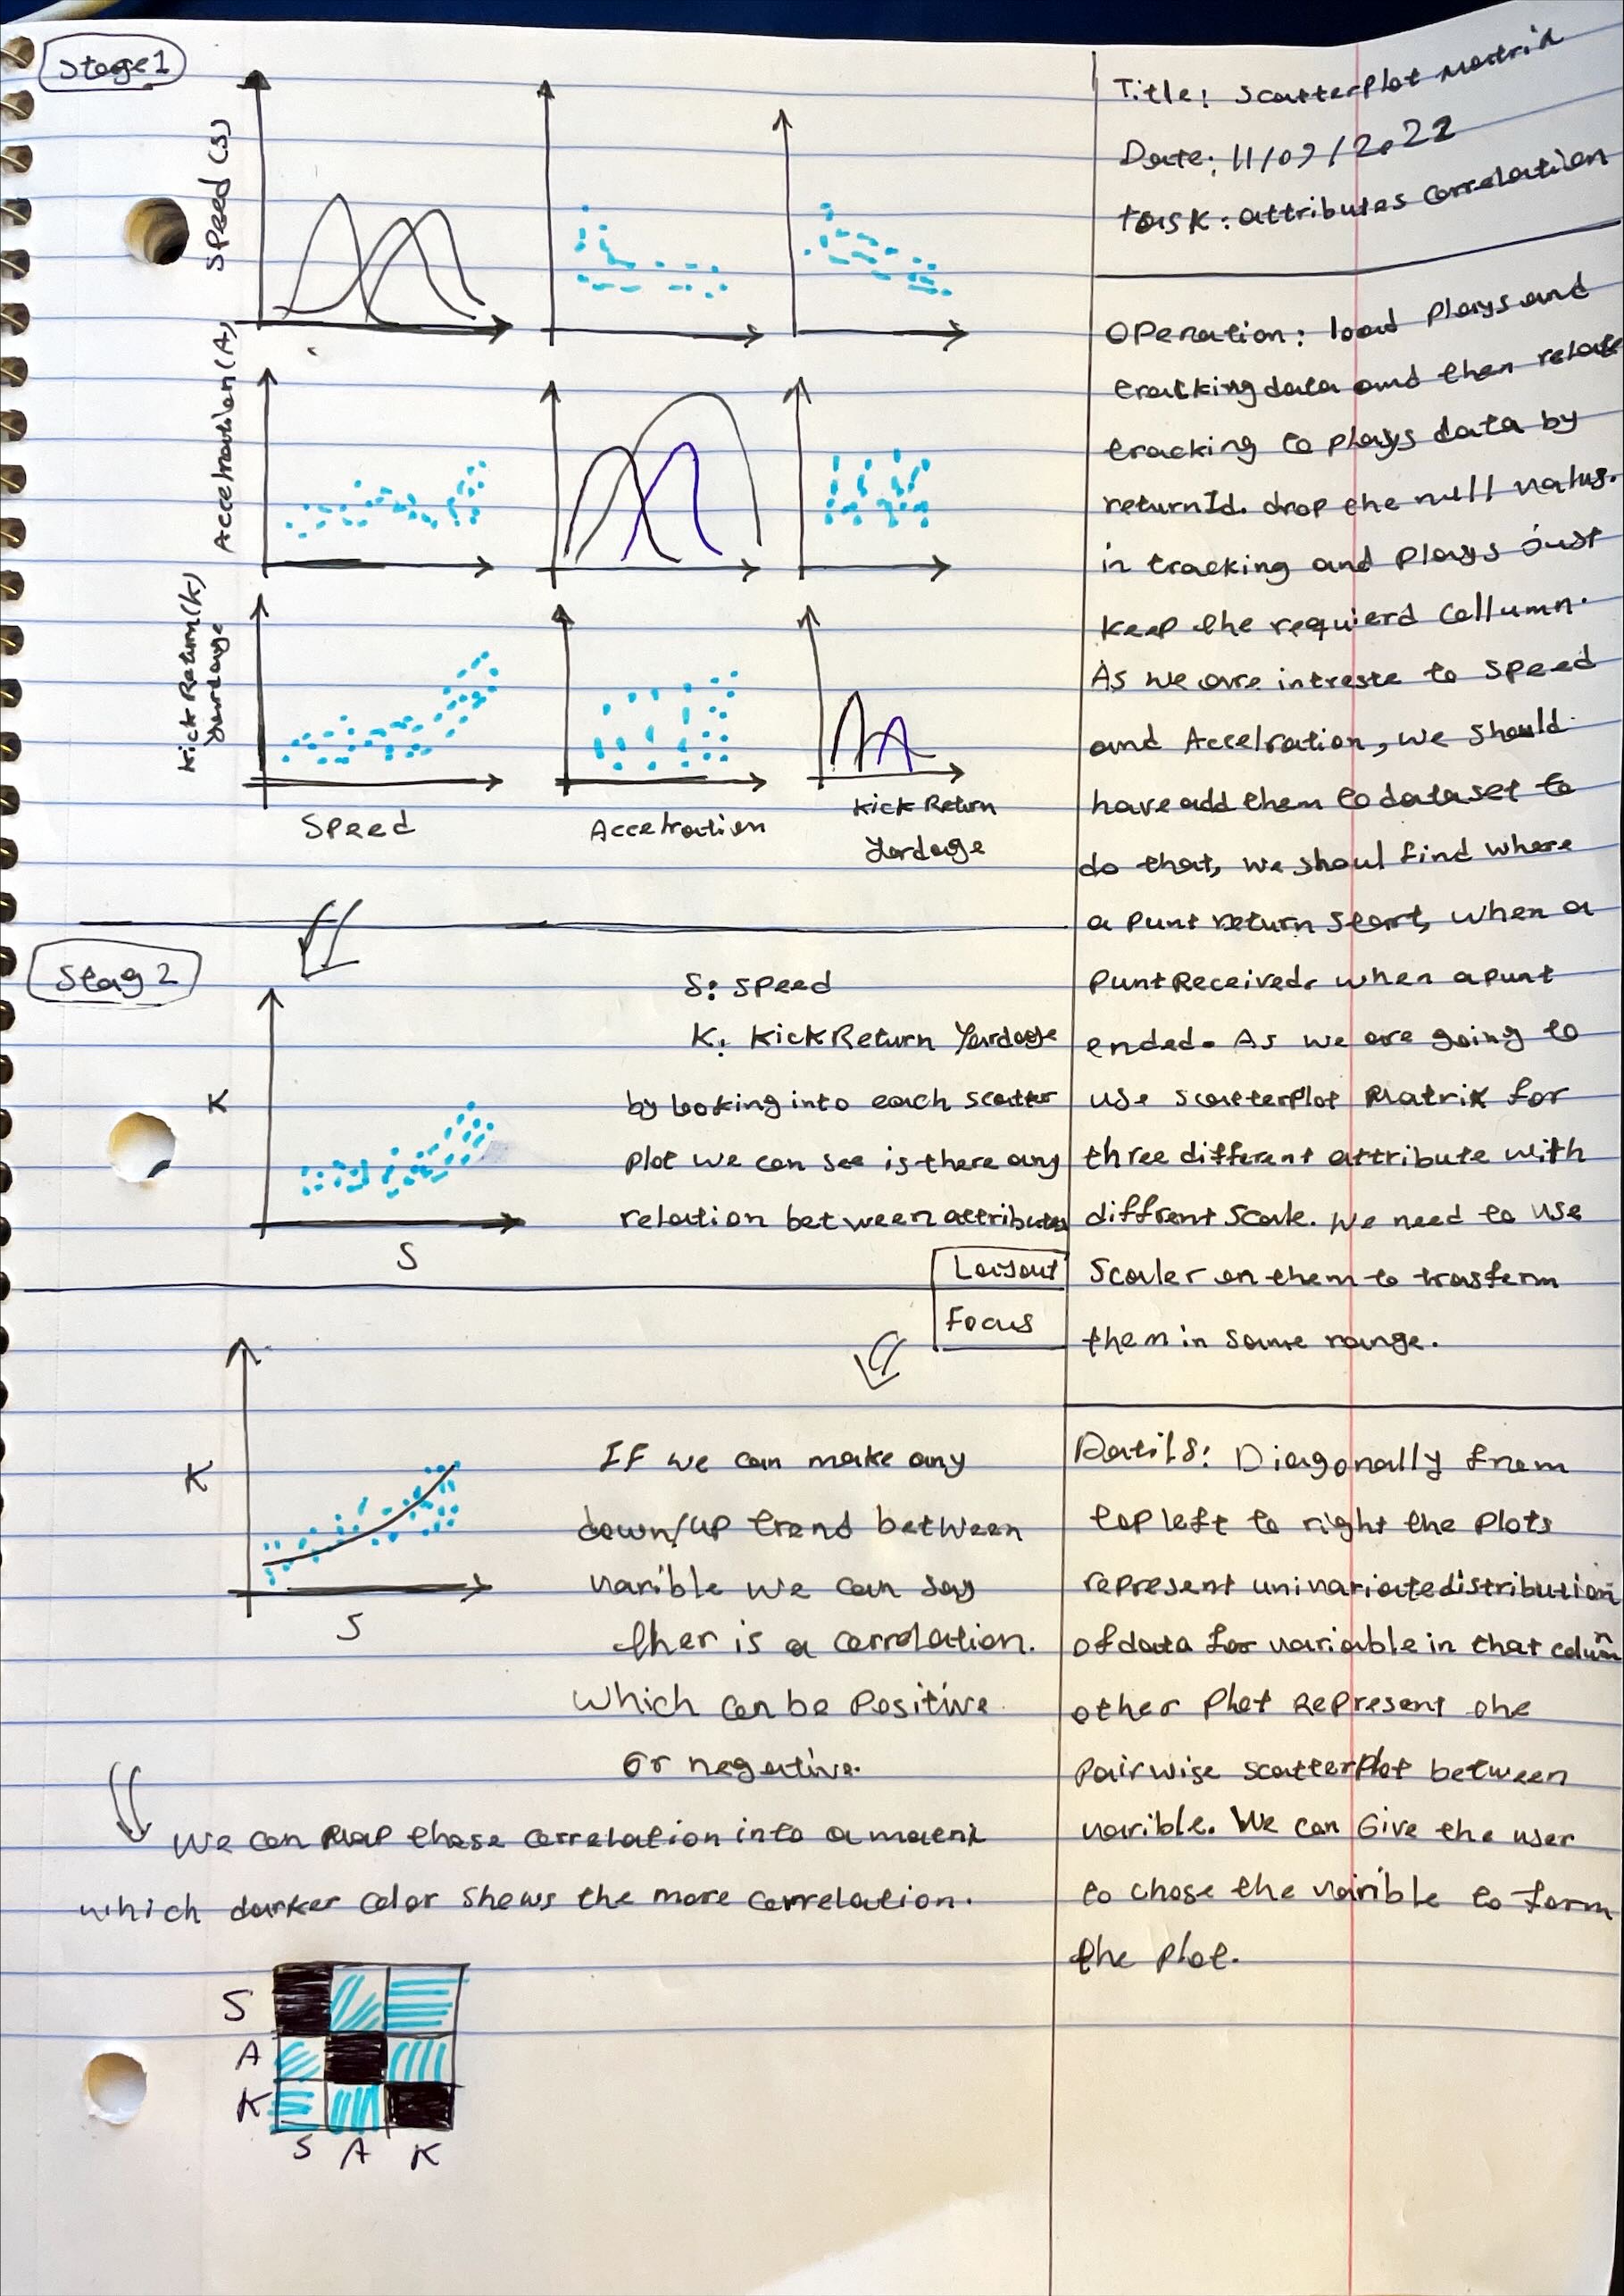 Stage1
Speed (S)
Accelration (A)
Kick Return (k)
Yardage
Speed
Accelration
Kick Return
Yardage
Stag 2
K
S
S: Speed
K: Kick Return Yardage
by looking into each scatter
plot we can see is there any
relation between attributes
Layout
Focus
K
S
If we can make any
down/up trend between
varible we can say
ther is a correlation.
Which can be Positive
or negative.
We can map these correlation into a matrix
which darker color shows the more correlation.
S
A
K
S A K
Title: Scatterplot Matrix
Date: 11/09/2022
task: attributes correlation
Operation: load Plays and
tracking data and then relate
tracking to plays data by
returnId. drop the null valus.
in tracking and Plays Just
keep the requierd Collumn.
As we are intreste to Speed
and Accelration, we should
have add them to dataset to
do that, we shoul find where
a punt return start, when a
Punt Received. when a punt
ended. As we are going to
use scatterplot Matrix for
three different attribute with
diffrent Scale. we need to use
Scaler on them to trasferm
them in same range.
Datils: Diagonally from
top left to right the Plots
represent univariate distribution
of data for variable in that colum
other Plot Represent the
Pairwise scatterplot between
varible. We can Give the user
to chose the varible to form
the plot.